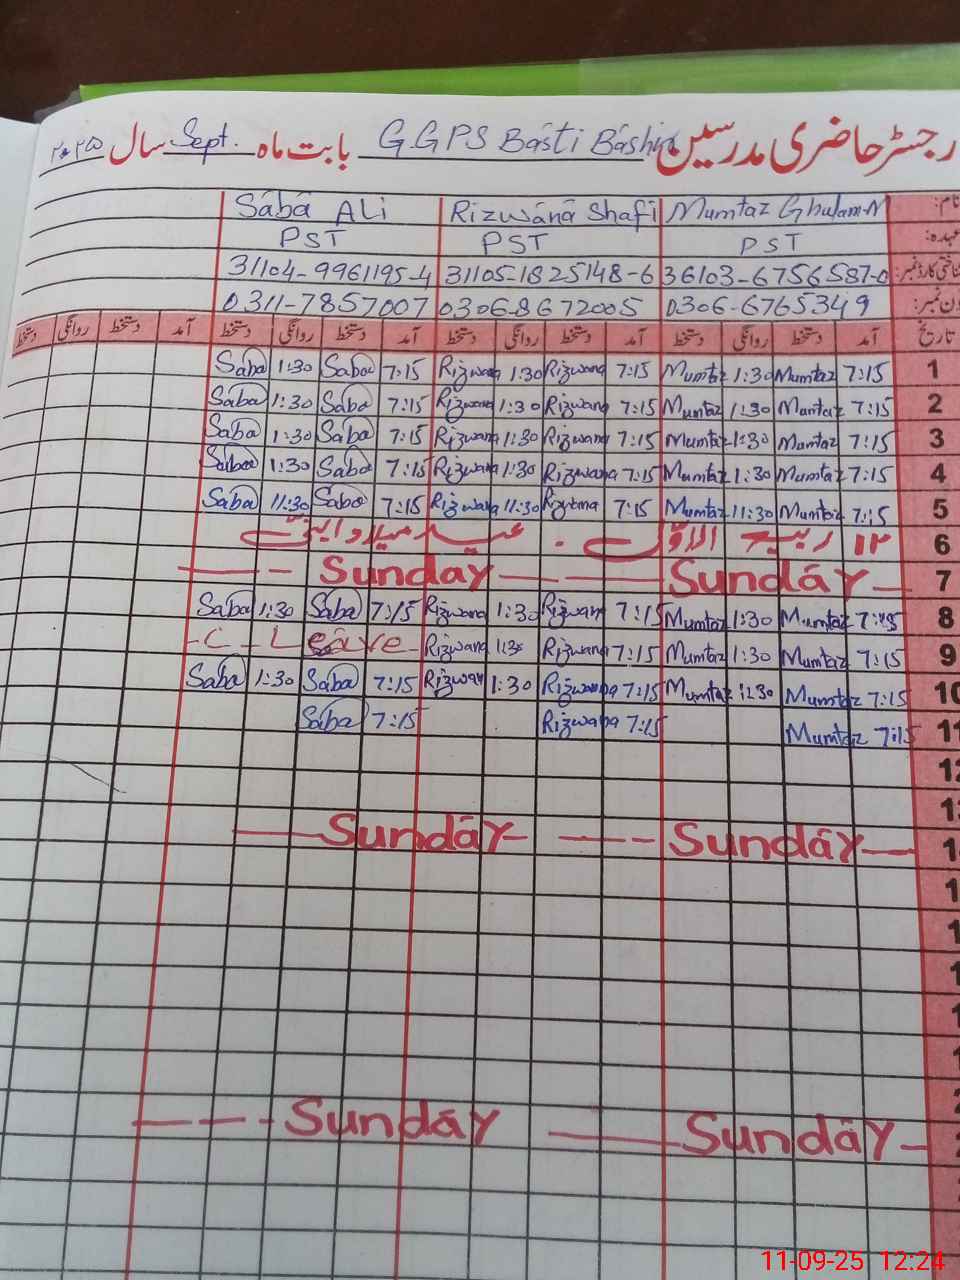 رجسٹر حاضری مدرسین G.GPS Basti Bashir بابت ماہ Sept. سال ۲۰۲۵
نام: Mumtaz Ghulam-M Rizwana Shafi Saba ALi
عہدہ: PST PST PST
شناختی کارڈ نمبر: 36103-6756587-0 31105-1825148-6 31104-9961195-4
فون نمبر: 0306-6765349 0306-8672005 0311-7857007
تاریخ آمد دستخط روانگی دستخط آمد دستخط روانگی دستخط آمد دستخط روانگی دستخط آمد دستخط روانگی دستخط
1 7:15 Mumtaz 1:30 Mumtaz 7:15 Rizwana 1:30 Rizwana 7:15 Saba 1:30 Saba
2 7:15 Mumtaz 1:30 Mumtaz 7:15 Rizwana 1:30 Rizwana 7:15 Saba 1:30 Saba
3 7:15 Mumtaz 1:30 Mumtaz 7:15 Rizwana 1:30 Rizwana 7:15 Saba 1:30 Saba
4 7:15 Mumtaz 1:30 Mumtaz 7:15 Rizwana 1:30 Rizwana 7:15 Saba 1:30 Saba
5 7:15 Mumtaz 11:30 Mumtaz 7:15 Rizwana 11:30 Rizwana 7:15 Saba 11:30 Saba
6 ۱۲ ربیع الاوّل - عید میلاد النبی
7 Sunday Sunday
8 7:15 Mumtaz 1:30 Mumtaz 7:15 Rizwana 1:30 Rizwana 7:15 Saba 1:30 Saba
9 7:15 Mumtaz 1:30 Mumtaz 7:15 Rizwana 1:30 Rizwana C - Leave
10 7:15 Mumtaz 1:30 Mumtaz 7:15 Rizwana 1:30 Rizwana 7:15 Saba 1:30 Saba
11 7:15 Mumtaz 7:15 Rizwana 7:15 Saba
12
Sunday Sunday
Sunday Sunday
11-09-25 12:24